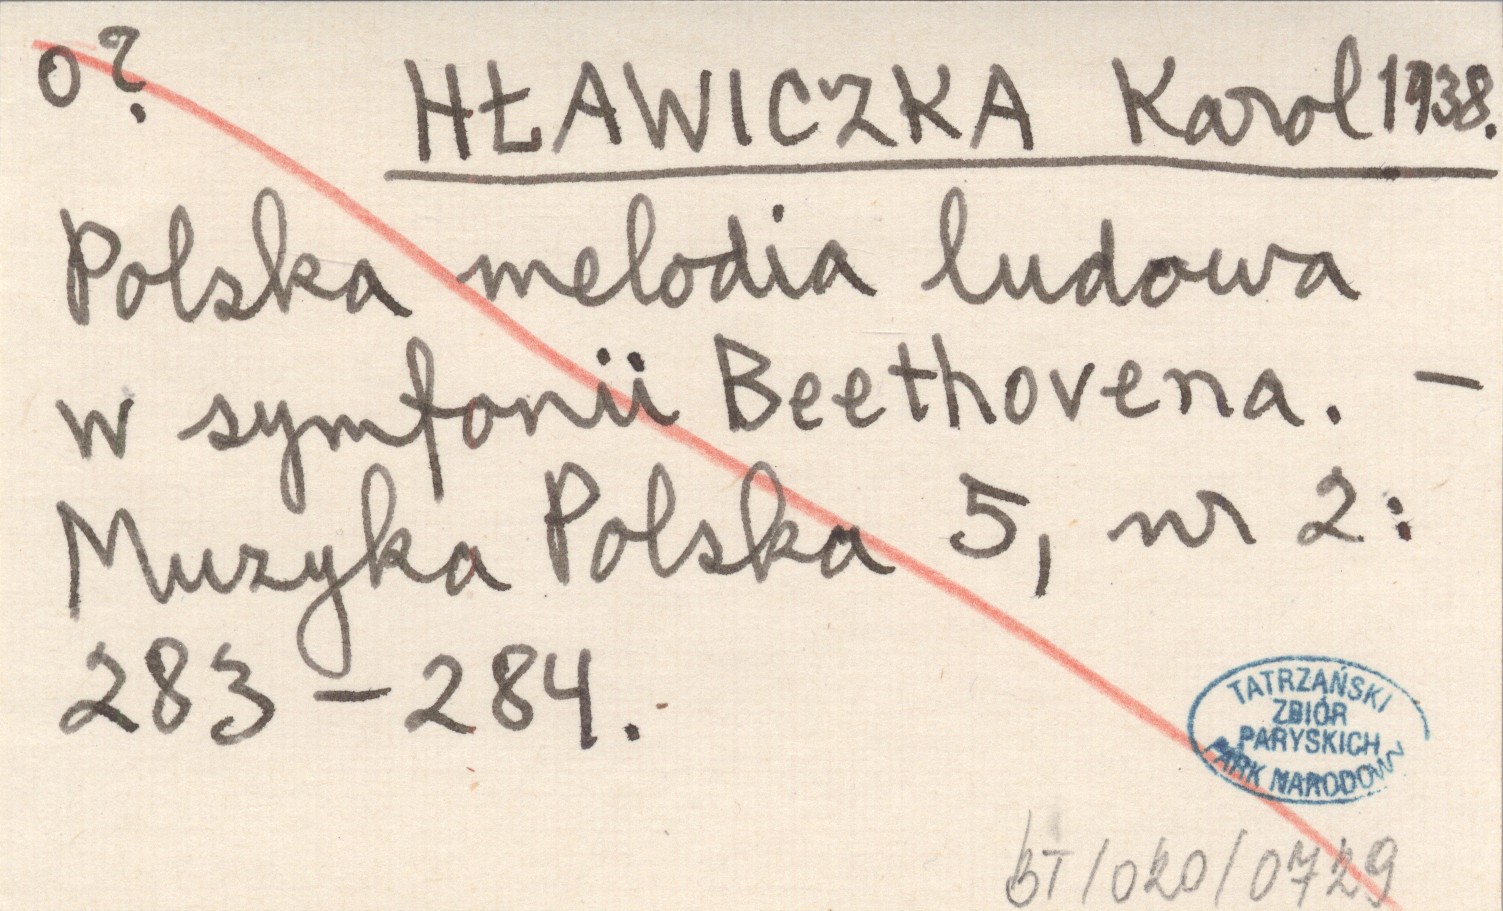 o?
HŁAWICZKA Karol 1938.
Polska melodia ludowa
w symfonii Beethovena. –
Muzyka Polska 5, nr 2:
283 – 284.
TATRZAŃSKI
ZBIÓR
PARYSKICH
PARK NARODOWY
BT/020/0729